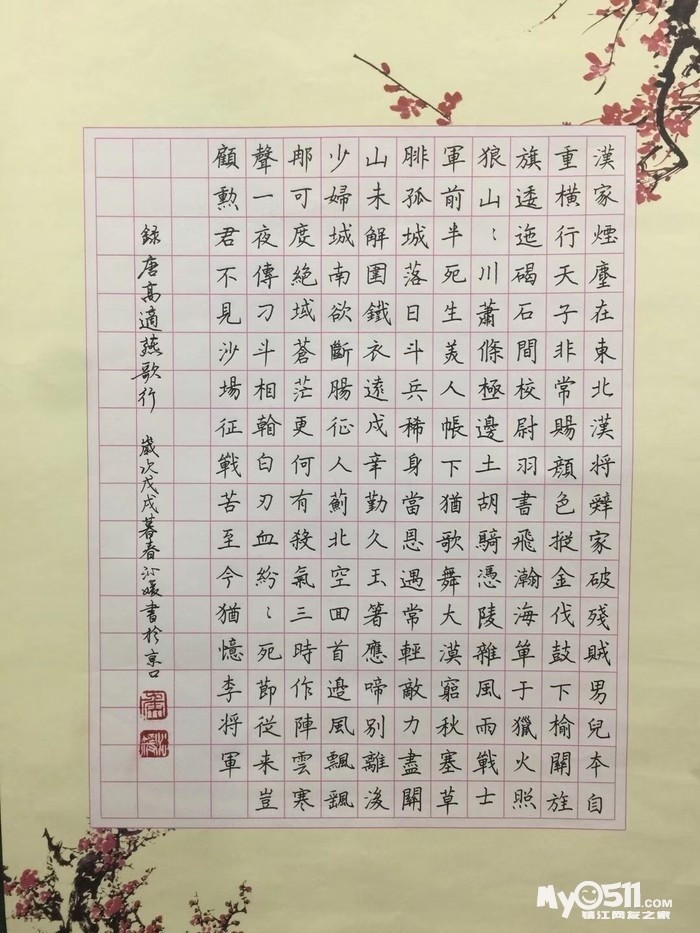 漢家煙塵在東北漢將辤家破殘賊男兒本自
重橫行天子非常賜顏色摐金伐鼓下榆關旌
旗逶迤碣石間校尉羽書飛瀚海單于獵火照
狼山〻川蕭條極邊土胡騎憑陵雜風雨戰士
軍前半死生美人帳下猶歌舞大漠窮秋塞草
腓孤城落日斗兵稀身當恩遇常輕敵力盡關
山未解圍鐵衣遠戍辛勤久玉箸應啼別離後
少婦城南欲斷腸征人薊北空回首邊風飄飄
那可度絕域蒼茫更何有殺氣三時作陣雲寒
聲一夜傳刁斗相看白刃血紛〻死節從来豈
顧勲君不見沙場征戰苦至今猶憶李將軍
録唐高適燕歌行 歲次戊戌暮春沁媛書於京口
My0511.COM
鎮江网友之家